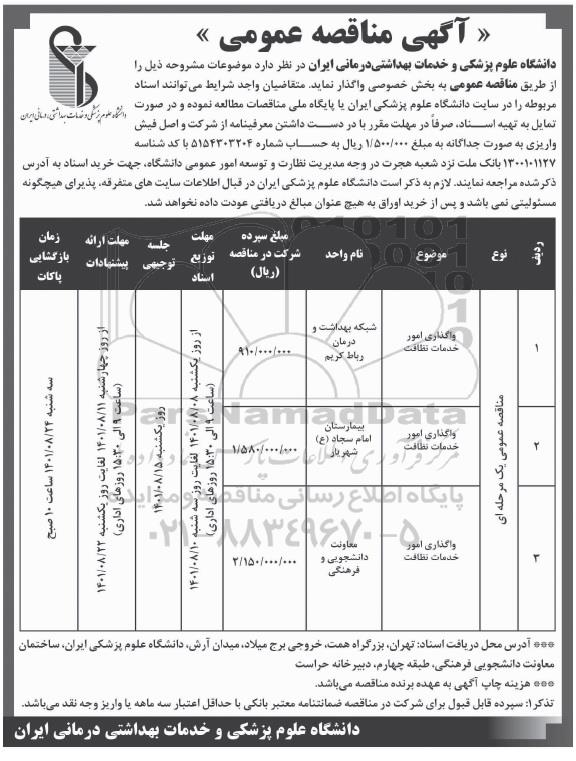 « آگهی مناقصه عمومی »
دانشگاه علوم پزشکی و خدمات بهداشتی درمانی ایران
دانشگاه علوم پزشکی و خدمات بهداشتی‌درمانی ایران در نظر دارد موضوعات مشروحه ذیل را
از طریق مناقصه عمومی به بخش خصوصی واگذار نماید. متقاضیان واجد شرایط می‌توانند اسناد
مربوطه را در سایت دانشگاه علوم پزشکی ایران یا پایگاه ملی مناقصات مطالعه نموده و در صورت
تمایل به تهیه اسناد، صرفاً در مهلت مقرر با در دست داشتن معرفینامه از شرکت و اصل فیش
واریزی به صورت جداگانه به مبلغ ۱/۵۰۰/۰۰۰ ریال به حساب شماره ۵۱۵۴۳۰۳۲۰۴ با کد شناسه
۱۳۰۰۱۰۱۱۲۷ بانک ملت نزد شعبه هجرت در وجه مدیریت نظارت و توسعه امور عمومی دانشگاه، جهت خرید اسناد به آدرس
ذکرشده مراجعه نمایند. لازم به ذکر است دانشگاه علوم پزشکی ایران در قبال اطلاعات سایت های متفرقه، پذیرای هیچگونه
مسئولیتی نمی باشد و پس از خرید اوراق به هیچ عنوان مبالغ دریافتی عودت داده نخواهد شد.
ردیف
نوع
موضوع
نام واحد
مبلغ سپرده شرکت در مناقصه (ریال)
مهلت توزیع اسناد
جلسه توجیهی
مهلت ارائه پیشنهادات
زمان بازگشایی پاکات
۱
مناقصه عمومی یک مرحله ای
واگذاری امور
خدمات نظافت
شبکه بهداشت و
درمان
رباط کریم
۹۱۰/۰۰۰/۰۰۰
از روز یکشنبه ۱۴۰۱/۰۸/۰۸ لغایت روز سه شنبه ۱۴۰۱/۰۸/۱۰
(ساعت ۹ الی ۱۵:۳۰ روزهای اداری)
روز یکشنبه ۱۴۰۱/۰۸/۱۵
از روز چهارشنبه ۱۴۰۱/۰۸/۱۱ لغایت روز یکشنبه ۱۴۰۱/۰۸/۲۲
(ساعت ۹ الی ۱۵:۳۰ روزهای اداری)
سه شنبه ۱۴۰۱/۰۸/۲۴ ساعت ۱۰ صبح
۲
واگذاری امور
خدمات نظافت
بیمارستان
امام سجاد (ع)
شهریار
۱/۵۸۰/۰۰۰/۰۰۰
۳
واگذاری امور
خدمات نظافت
معاونت
دانشجویی و
فرهنگی
۲/۱۵۰/۰۰۰/۰۰۰
ParsNamadData
پایگاه اطلاع رسانی مناقصه و مزایده
۰۲۱-۸۸۳۴۹۶۷۰-۵
*** آدرس محل دریافت اسناد: تهران، بزرگراه همت، خروجی برج میلاد، میدان آرش، دانشگاه علوم پزشکی ایران، ساختمان
معاونت دانشجویی فرهنگی، طبقه چهارم، دبیرخانه حراست
*** هزینه چاپ آگهی به عهده برنده مناقصه می‌باشد.
تذکر۱: سپرده قابل قبول برای شرکت در مناقصه ضمانتنامه معتبر بانکی با حداقل اعتبار سه ماهه یا واریز وجه نقد می‌باشد.
دانشگاه علوم پزشکی و خدمات بهداشتی درمانی ایران